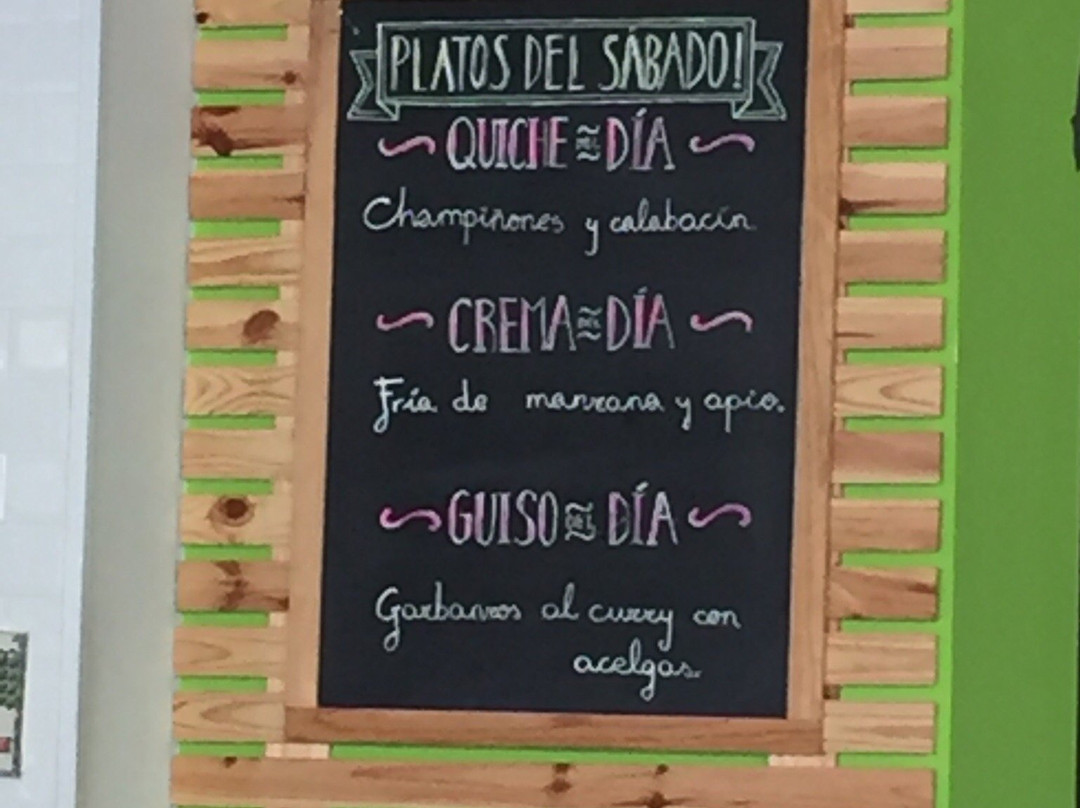 PLATOS DEL SÁBADO!
QUICHE DEL DÍA
Champiñones y calabacín
CREMA DEL DÍA
Fría de manzana y apio.
GUISO DEL DÍA
Garbanzos al curry con
acelgas.